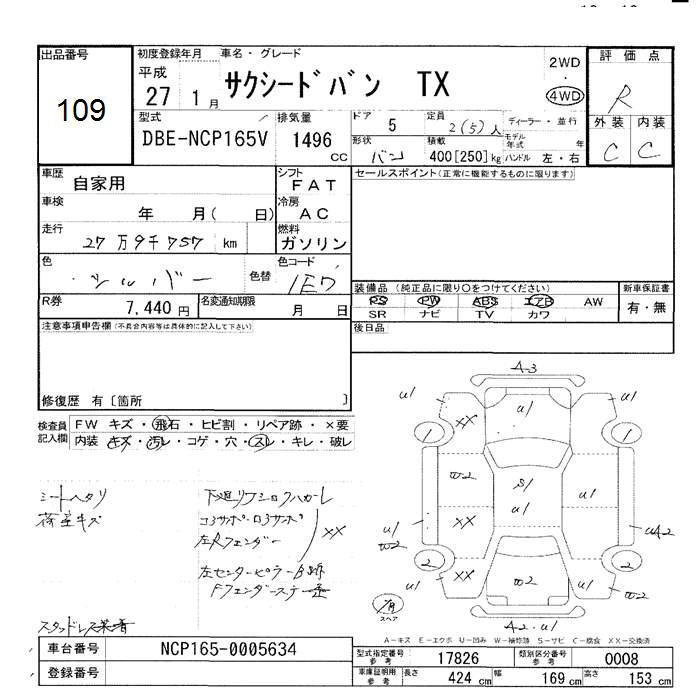 出品番号
109
初度登録年月
平成
27 1月
車名・グレード
サクシードバン TX
2WD
・
4WD
評価点
R
外装 内装
C C
型式
DBE-NCP165V
排気量
1496
cc
ドア
5
定員
2(5)人
ディーラー・並行
形状
バン
積載
400[250]kg
モデル年式 年
ハンドル 左・右
車歴
自家用
シフト
FAT
セールスポイント(正常に機能するものに限ります)
車検
年 月( 日)
冷房
AC
走行
27万9千757 km
燃料
ガソリン
色
シルバー
色替
色コード
1E7
装備品 (純正品に限り○をつけてください)
PS PW ABS エアB AW
SR ナビ TV カワ
新車保証書
有・無
R券
7,440円
名変通知期限
月 日
後日品
注意事項申告欄(不具合内容等は具体的に記入して下さい)
修復歴 有〔箇所 〕
検査員記入欄
FW キズ・飛石・ヒビ割・リペア跡・×要
内装 キズ・汚レ・コゲ・穴・スレ・キレ・破レ
シートヘタリ
荷室キズ
コアサポ・ロアサポ
左Rフェンダー
XX
左センターピラー
Fフェンダーステー
スタッドレス装着
A-3
U1 U1 U1
XX
1 1
W2 S1 U1
U1
U1 W2
XX
UA2
2 2
U1 XX W2 U1
スペア
A2・U1
A-キズ E-エクボ U-凹み W-補修跡 S-サビ C-腐食 XX-交換済
車台番号
NCP165-0005634
登録番号
型式指定番号
参考
17826
類別区分番号
参考
0008
車庫証明用
参考
長さ 424 cm 幅 169 cm 高さ 153 cm